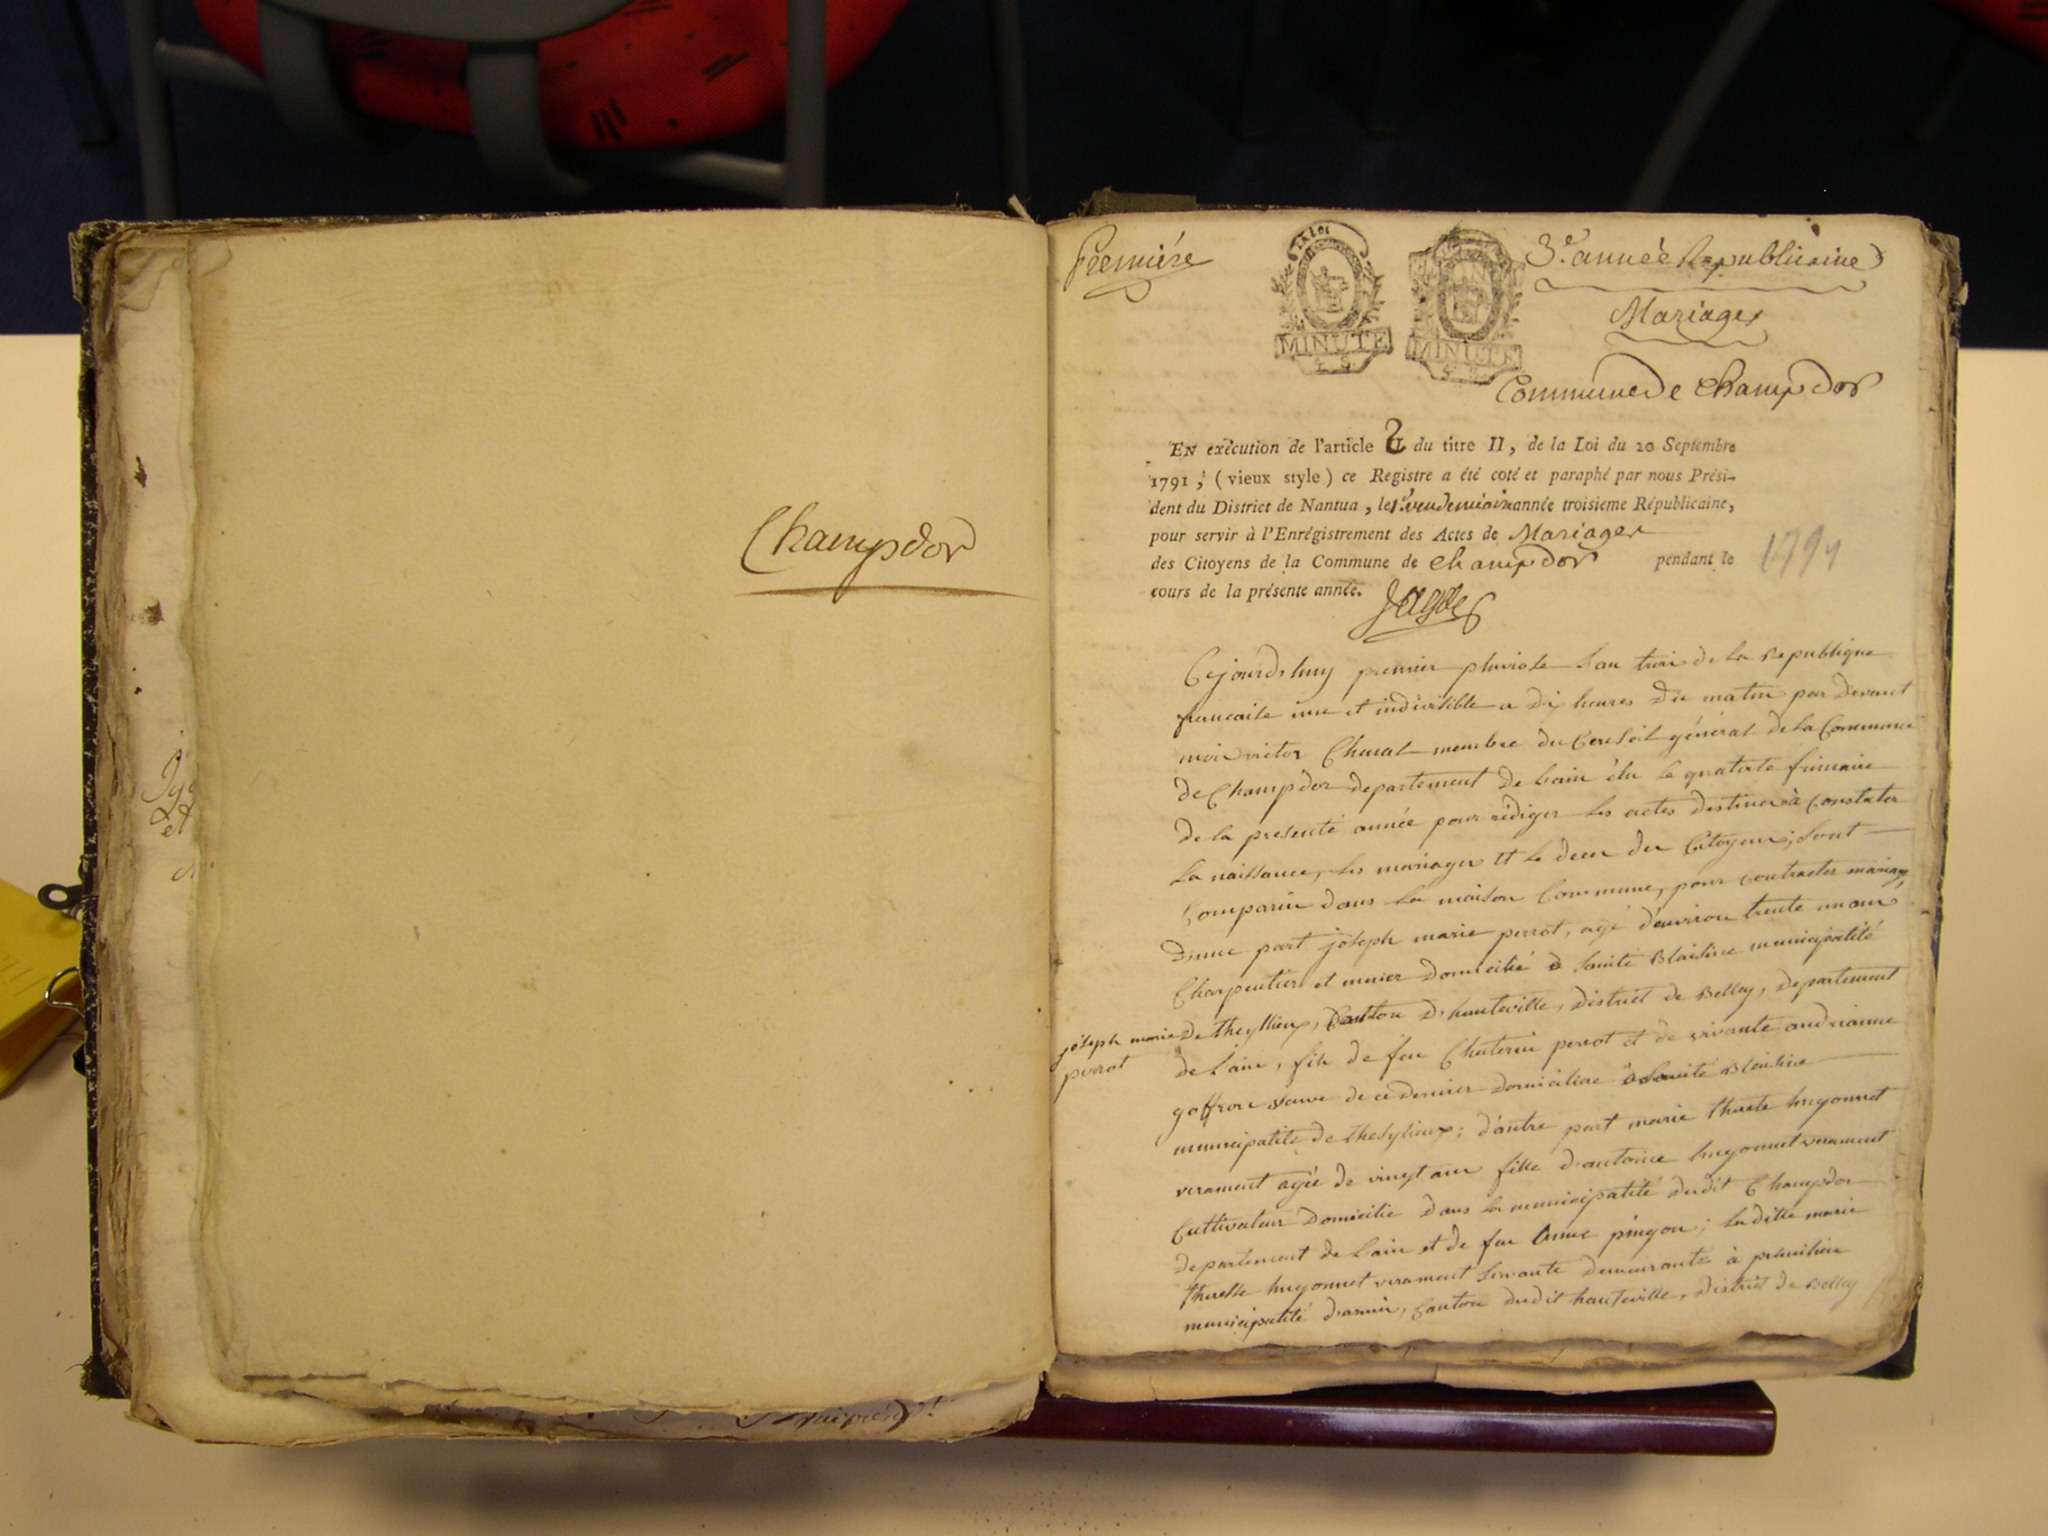 Champdor
Premiére
LA LOI
MINUTE
MINUTE
3e. année Republicaine
Mariages
Commune de Champdor
EN exécution de l'article 2 du titre II, de la Loi du 20 Septembre
1791, (vieux style) ce Registre a été coté et paraphé par nous Prési-
dent du District de Nantua, le 1er vendemiaire année troisieme Républicaine,
pour servir à l'Enrégistrement des Actes de Mariages
des Citoyens de la Commune de Champdor pendant le
cours de la présente année.
179
Cejourdhuy premier pluviose l'an trois de la Republique
francaise une et indivisible a dix heures du matin par devant
moi victor Chuat membre du Conseil général de la Commune
de Champdor departement de l'ain élu le quatorze frimaire
de la presente année pour rédiger les actes destinés à Constater
la naissance, les mariages et le deces des Citoyens; sont
Comparus dans la maison Commune, pour contracter mariage,
d'une part joseph marie perrot, agé d'environ trente un ans
Charpentier et domicilié a Sainte Blaisine municipalité
joseph marie
perrot
de thezillieux, Canton d'hauteville, district de Belley, departement
de l'ain, fils de feu perrot et de vivante andrianne
goffron veuve de ce dernier domiciliée a Sainte Blaisine
municipalité de thesylieux; d'autre part marie therese hugonnet
verament agée de vingt ans fille d'antoine hugonnet verament
Cultivateur domicilié dans la municipalité dudit Champdor
departement de l'ain et de feu Anne pingon; ladite marie
theresse hugonnet verament servante demeurante à premilieu
municipalité d'armix, Canton dudit hauteville, district de Belley